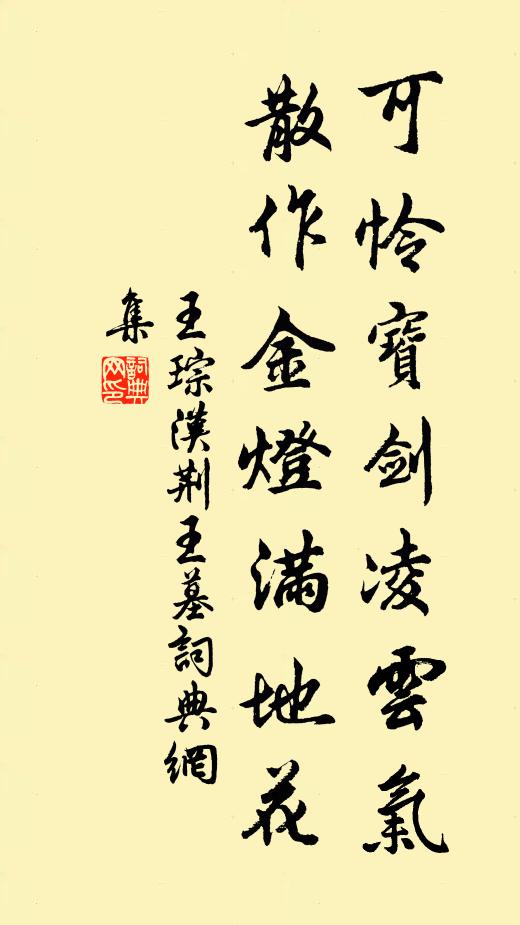 可怜寶剑凌雲氣
散作金燈满地花
王琮漢荆王墓詞典網
集
詞典
网印